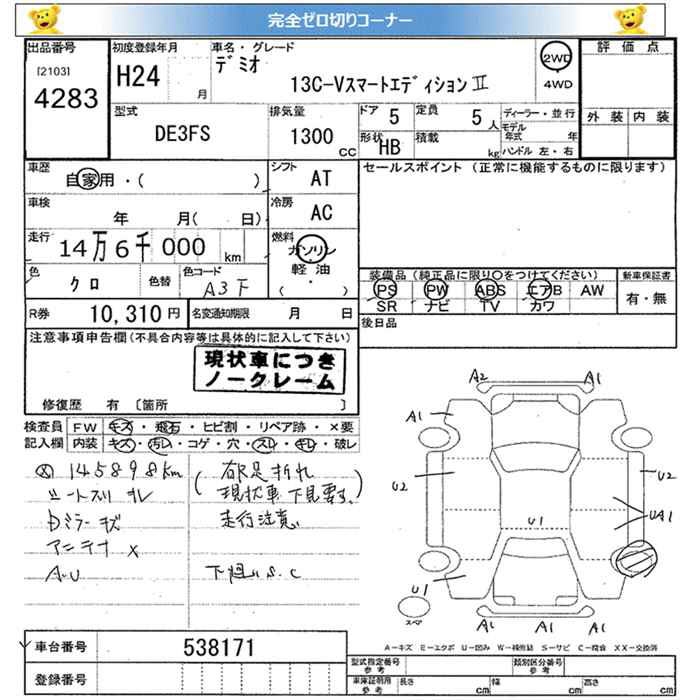 完全ゼロ切りコーナー
出品番号 初度登録年月 車名・グレード 評価点
[2103] H24 月 デミオ 2WD
4283 13C-VスマートエディションⅡ 4WD
型式 排気量 ドア 5 定員 5人 ディーラー・並行 外装 内装
DE3FS 1300 CC 形状 HB 積載 kg モデル年式 年
ハンドル 左・右
車歴 自家用・( ) シフト AT セールスポイント (正常に機能するものに限ります)
車検 年 月( 日) 冷房 AC
走行 14万6千000 km 燃料 ガソリン・軽油・( )
色 クロ 色替 色コード A3F 装備品 (純正品に限り〇をつけてください) 新車保証書
PS PW ABS エアB AW 有・無
SR ナビ TV カワ
R券 10,310円 名変通知期限 月 日 後日品
注意事項申告欄(不具合内容等は具体的に記入して下さい)
現状車につき
ノークレーム
修復歴 有 〔箇所 〕
検査員 FW キズ・飛石・ヒビ割・リペア跡・×要
記入欄 内装 キズ・汚れ・コゲ・穴・スレ・キレ・破レ
145898km
シートスリ キレ
ミラー キズ
アンテナ ×
A.U
現状車 下見要す。
走行注意
下廻りS.C
A2 A1
A1
U2 U2
U1 UA1
U1
A1 A1 A1
スペア
A-キズ E-エクボ U-凹み W-補修跡 S-サビ C-腐食 XX-交換済
車台番号 538171
登録番号
型式指定番号 参考 類別区分番号 参考
車庫証明用 参考 長さ cm 幅 cm 高さ cm